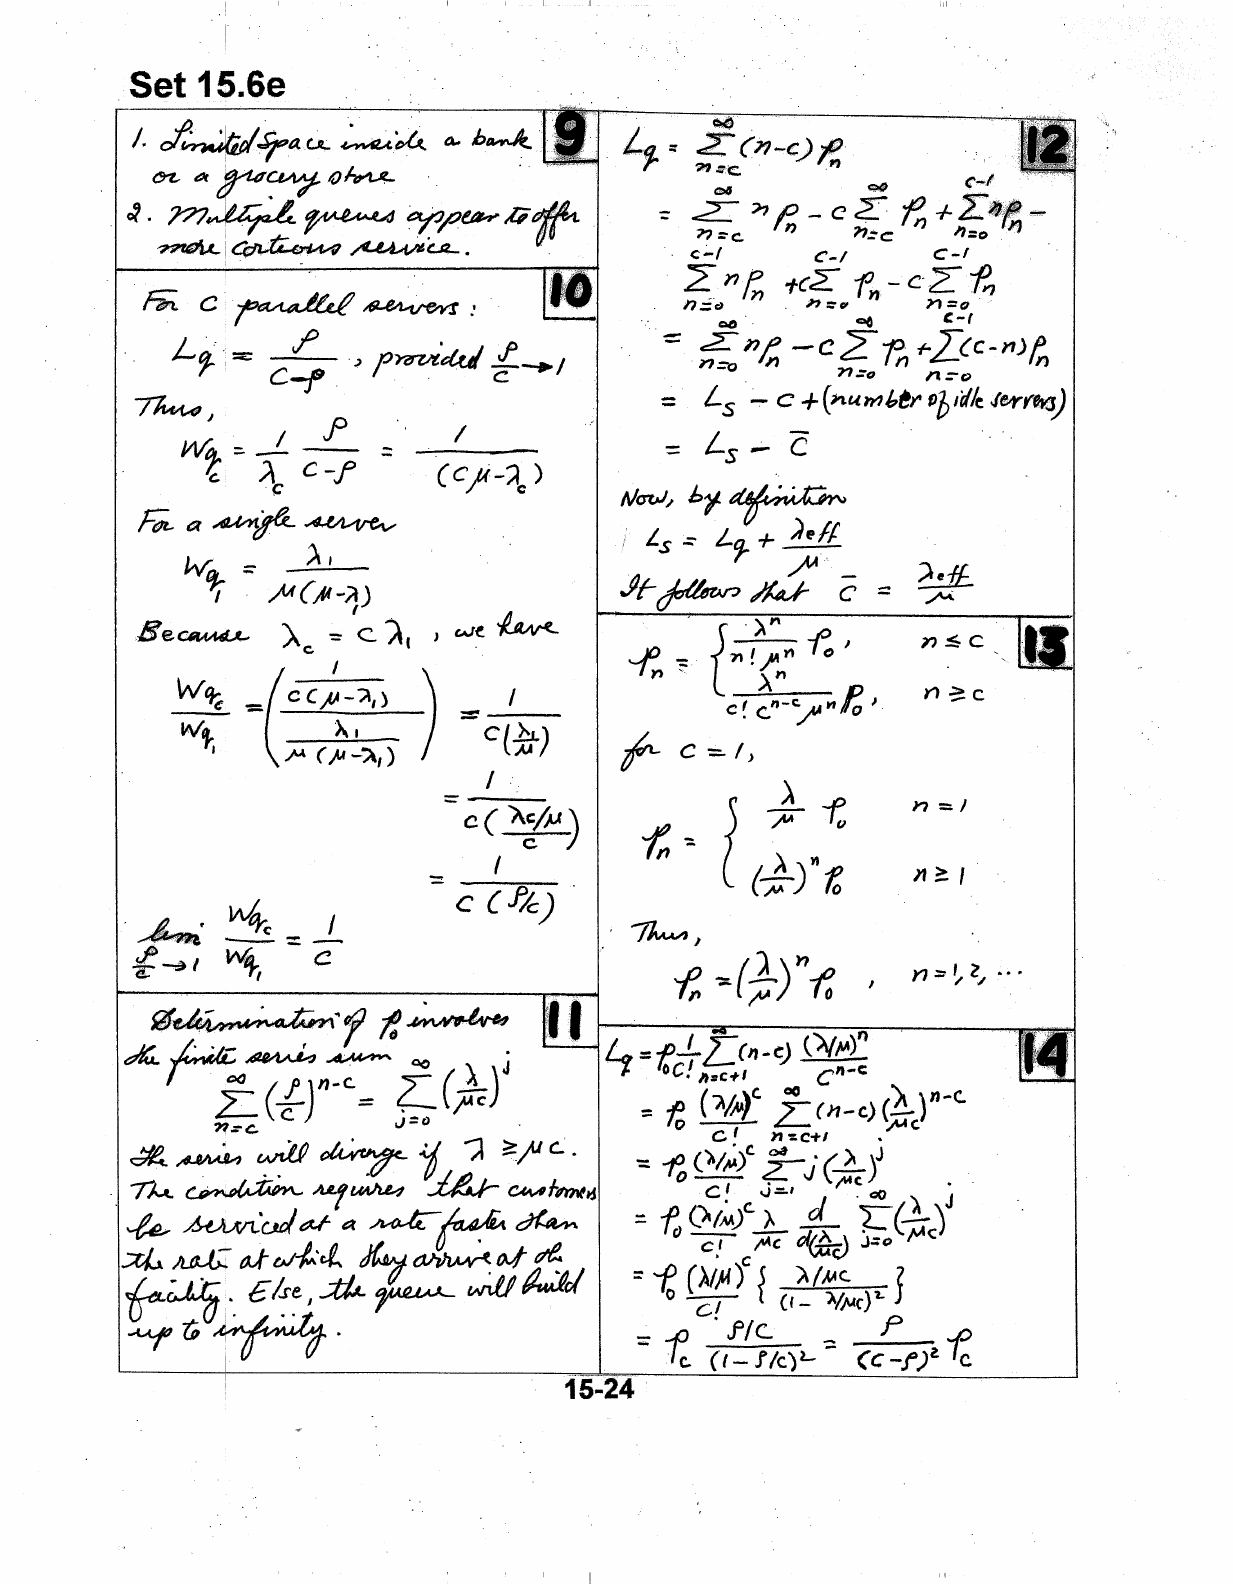 Set 15.6e
9
1. Limited Space inside a bank
or a grocery store
2. Multiple queues appear to offer
more corteous service.
10
For c parallel servers:
Lq = ρ/(c-ρ), provided ρ/c → 1
Thus,
Wqc = 1/λc ρ/(c-ρ) = 1/(cμ-λc)
For a single server
Wq1 = λ1/(μ(μ-λ1))
Because λc = cλ1, we have
Wqc/Wq1 = ( (1/(c(μ-λ1))) / (λ1/(μ(μ-λ1))) ) = 1/(c(λ1/μ))
= 1/(c((λc/μ)/c))
= 1/(c(ρ/c))
lim ρ/c→1 Wqc/Wq1 = 1/c
11
Determination of p0 involves
the finite series sum
∑n=c^∞ (ρ/c)^(n-c) = ∑j=0^∞ (λ/μc)^j
The series will diverge if λ ≥ μc.
The condition requires that customers
be serviced at a rate faster than
the rate at which they arrive at the
facility. Else, the queue will build
up to infinity.
12
Lq = ∑n=c^∞ (n-c)pn
= ∑n=c^∞ npn - c∑n=c^∞ pn + ∑n=0^(c-1) npn -
∑n=0^(c-1) npn + c∑n=0^(c-1) pn - c∑n=0^(c-1) pn
= ∑n=0^∞ npn - c∑n=0^∞ pn + ∑n=0^(c-1) (c-n)pn
= Ls - c + (number of idle servers)
= Ls - c̄
Now, by definition
Ls = Lq + λeff/μ
It follows that c̄ = λeff/μ
13
pn = { λ^n/(n! μ^n) p0, n ≤ c
λ^n/(c! c^(n-c) μ^n) p0, n ≥ c
for c = 1,
pn = { λ/μ p0 n = 1
(λ/μ)^n p0 n ≥ 1
Thus,
pn = (λ/μ)^n p0, n = 1, 2, ...
14
Lq = p0 1/c! ∑n=c+1^∞ (n-c) (λ/μ)^n/c^(n-c)
= p0 (λ/μ)^c/c! ∑n=c+1^∞ (n-c)(λ/μc)^(n-c)
= p0 (λ/μ)^c/c! ∑j=1^∞ j(λ/μc)^j
= p0 (λ/μ)^c/c! λ/μc d/d(λ/μc) ∑j=0^∞ (λ/μc)^j
= p0 (λ/μ)^c/c! { (λ/μc)/(1 - λ/μc)^2 }
= pc (ρ/c)/(1-ρ/c)^2 = ρ/(c-ρ)^2 pc
15-24